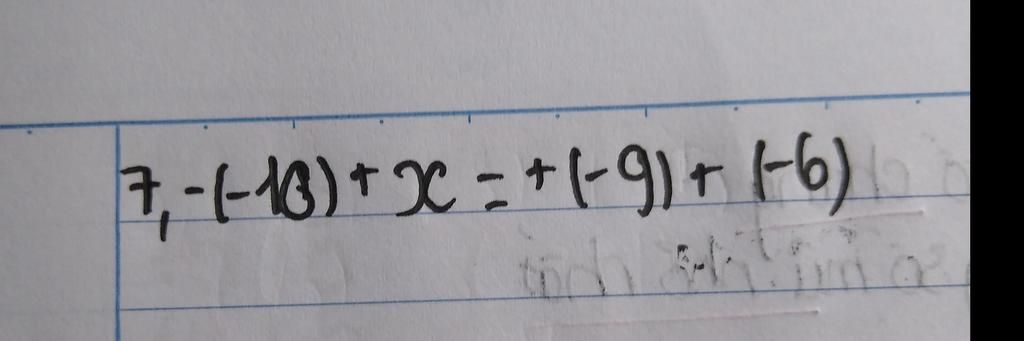 7, -(-13) + x = +(-9) + (-6)